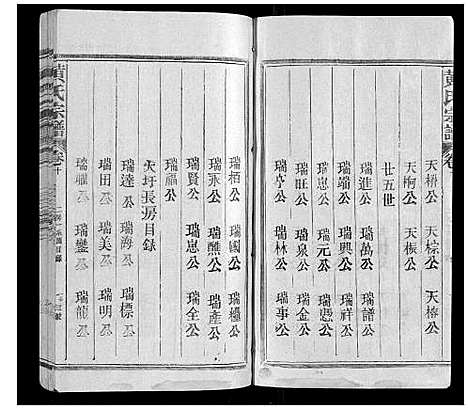 黃氏宗譜
天梧公 天棕公 天椿公
天桐公 天桭公
廿五世
瑞進公 瑞萬公 瑞譜公
瑞瑜公 瑞興公 瑞祥公
瑞忠公 瑞元公 瑞懸公
瑞旺公 瑞泉公 瑞金公
瑞亭公 瑞林公 瑞事公
瑞栢公 瑞國公 瑞櫃公
瑞永公 瑞醮公 瑞產公
瑞賢公 瑞恩公 瑞全公
瑞福公
火圩長房目錄
瑞達公 瑞海公 瑞標公
瑞田公 瑞美公 瑞明公
瑞耀公 瑞鑾公 瑞龍公
黃氏宗譜 卷十